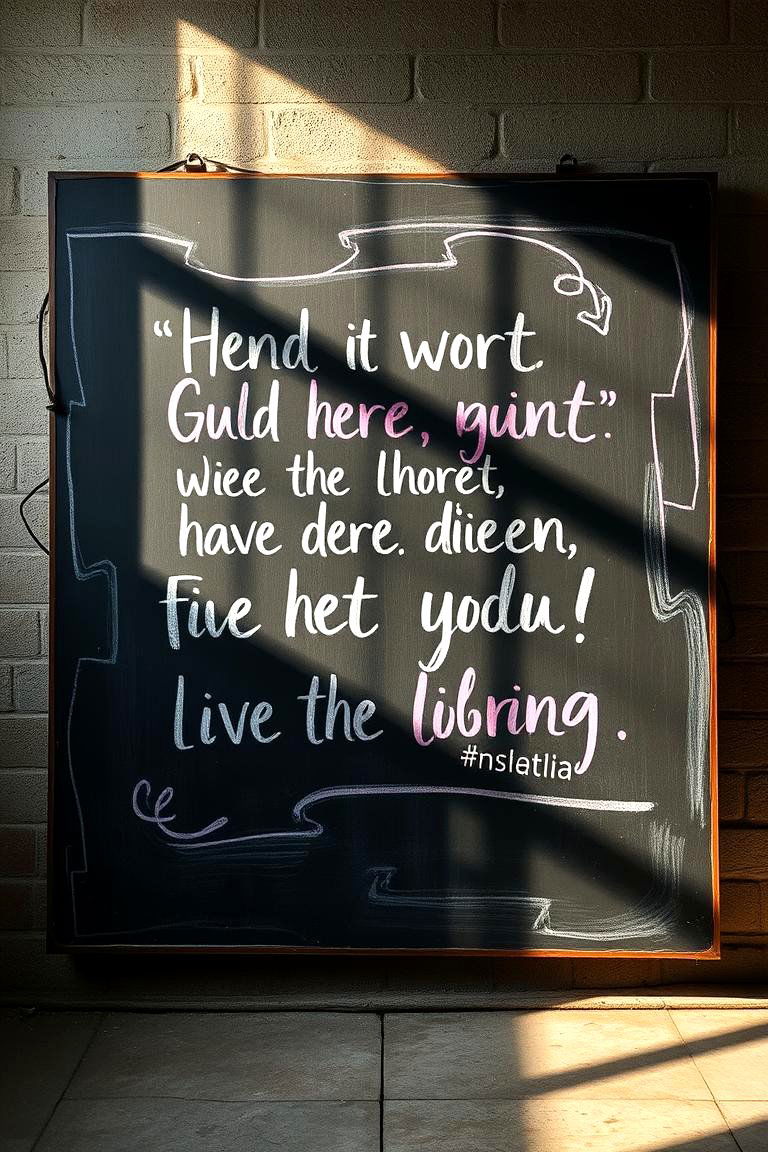 “Hend it wort.
Guld here, guint.”
wiee the lhoret,
have dere. diieen,
Five het yodu!
Live the lobring.
#nsletlia